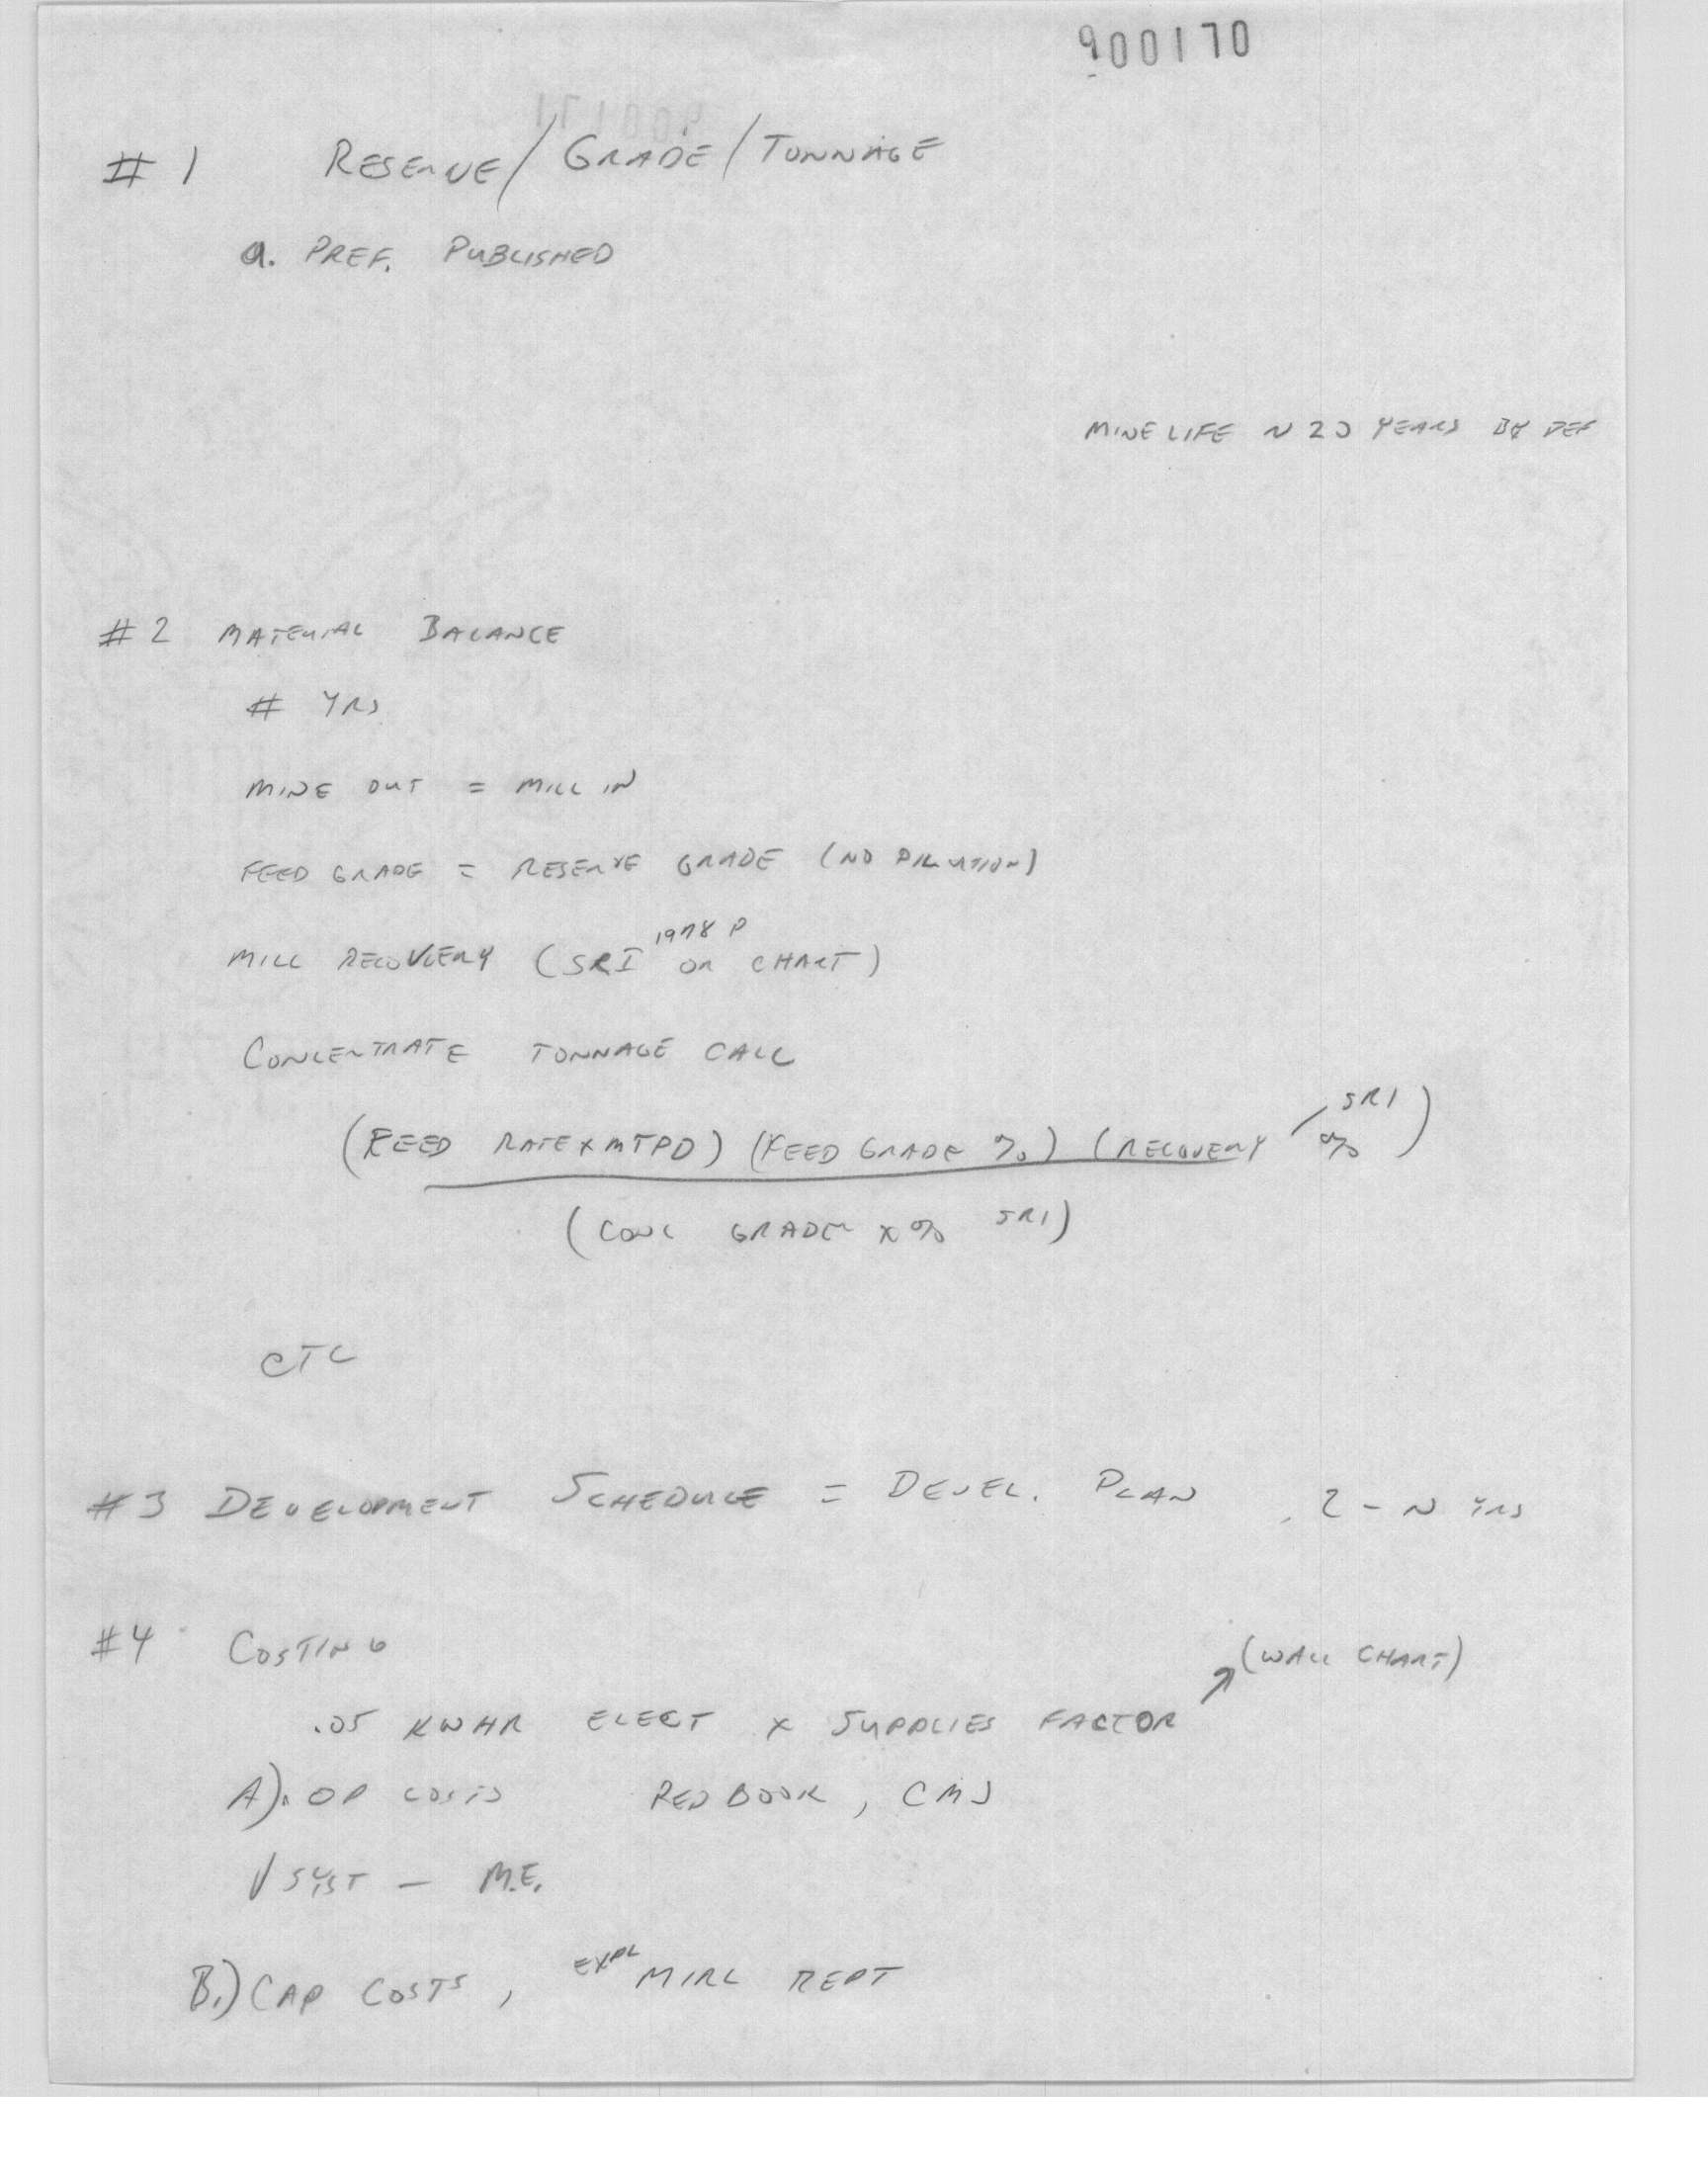 900170
# 1 RESERVE / GRADE / TONNAGE
a. PREF. PUBLISHED
MINE LIFE ~ 20 YEARS BY DEF
#2 MATERIAL BALANCE
# YRS
MINE OUT = MILL IN
FEED GRADE = RESERVE GRADE (NO DILUTION)
1978 P
MILL RECOVERY (SRI OR CHART)
CONCENTRATE TONNAGE CALC
SRI
(FEED RATE x MTPD) (FEED GRADE %) (RECOVERY %)
(CONC GRADE x % SRI)
ETC
#3 DEVELOPMENT SCHEDULE = DEVEL. PLAN 2 - N YRS
#4 COSTING
(WALL CHART)
.05 KWHR ELECT x SUPPLIES FACTOR
A). OP COSTS RED BOOK, CMJ
√ SYST - M.E.
B.) CAP COSTS, EXPL MIRL REPT